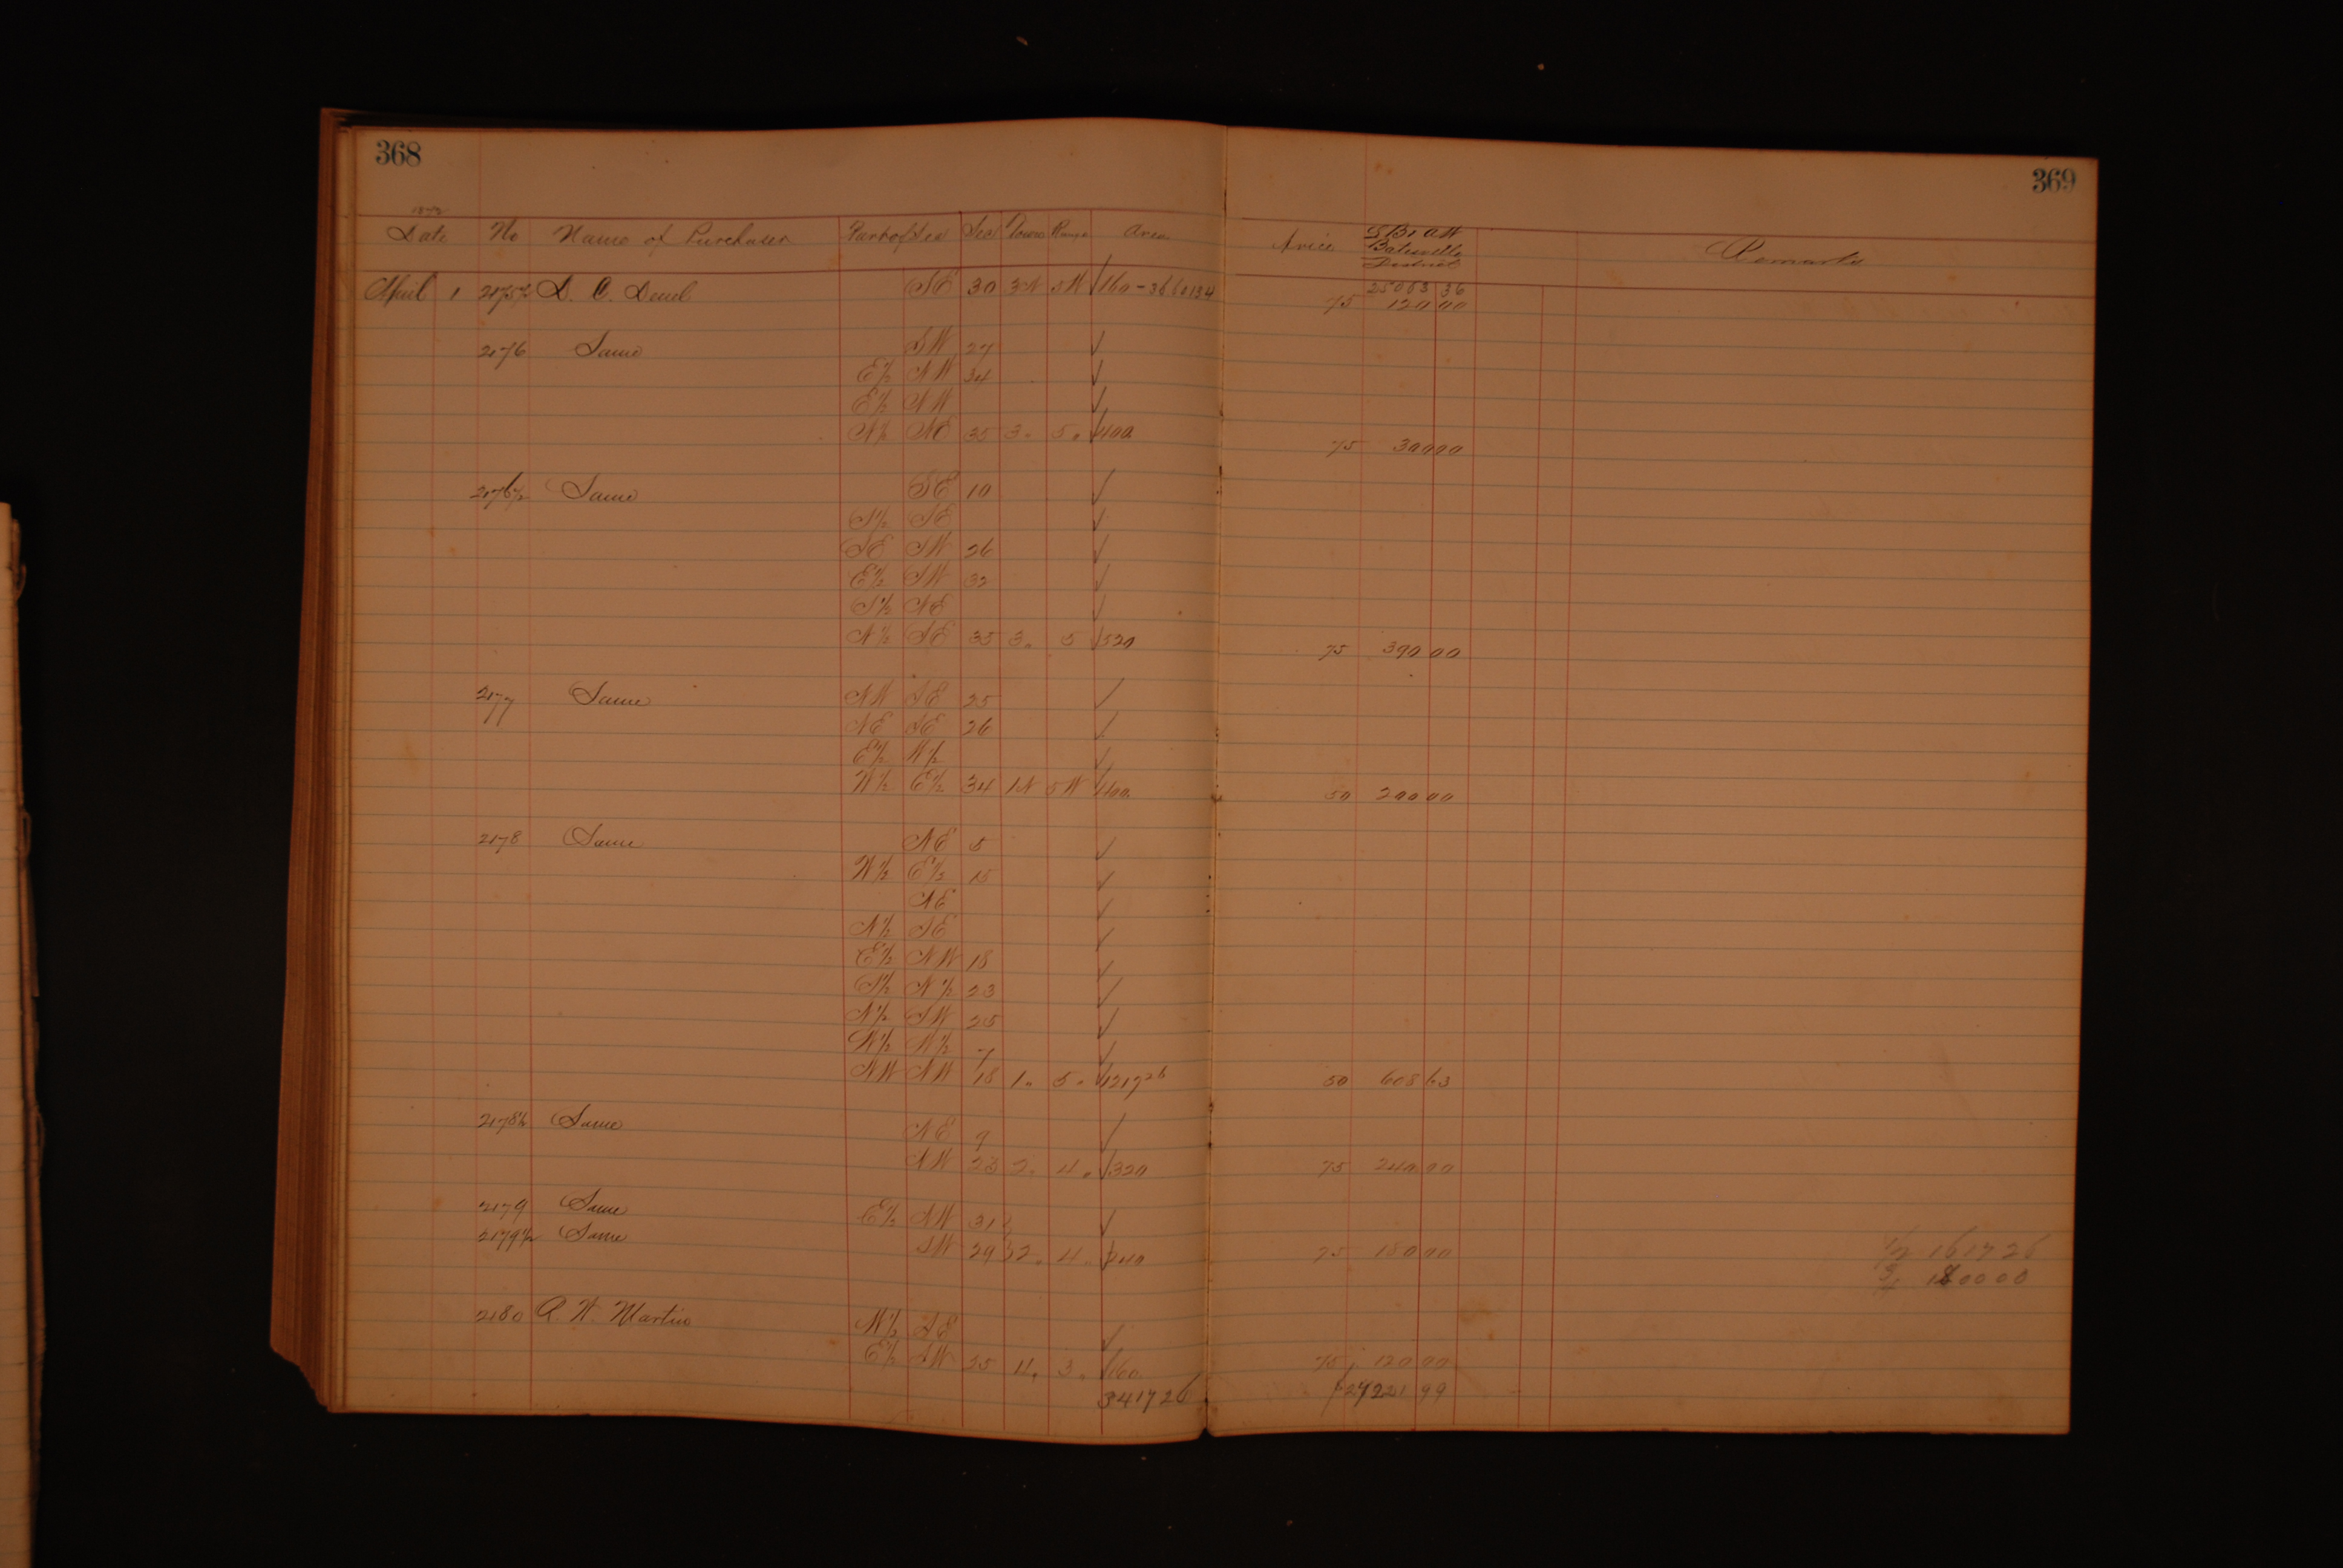 368
369
1872
Date No Name of Purchaser Part of Sec Sec Town Range Area Price Batesville District Remarks
25063 36
April 1 2175½ SE 30 3N 5W 160 75 120 00
2176 Same SW 27
E½ NW 34
E½ NW
N½ NE 35 3 " 5 " 400 75 300 00
2176½ Same SE 10
S½ SE
SE SW 26
E½ SW 32
S½ NE
N½ SE 35 3 " 5 520 75 390 00
2177 Same NW SE 25
NE SE 26
E½ W½
W½ E½ 34 1N 5W 400 50 200 00
2178 Same NE 5
W½ E½ 15
NE
N½ SE
E½ NW 18
S½ N½ 23
N½ SW 25
W½ W½ 7
NW NW 18 1 " 5 " 1217 26 50 608 63
2178½ Same NE 9
NW 23 2 " 4 " 320 75 240 00
2179 Same E½ NW 31
2179½ Same SW 29 2 " 4 " 240 75 180 00
½ 1617 26
¾ 1800 00
2180 A. W. Martin W½ SE
E½ SW 35 11 " 3 " 160 75 120 00
3417 26 27221 99